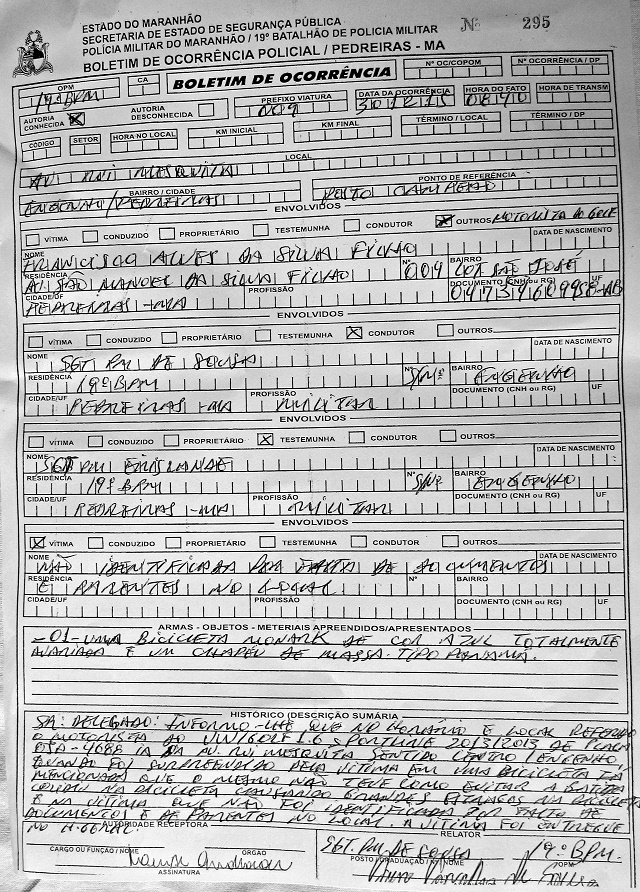 ESTADO DO MARANHÃO
SECRETARIA DE ESTADO DE SEGURANÇA PÚBLICA
POLÍCIA MILITAR DO MARANHÃO / 19º BATALHÃO DE POLICIA MILITAR
BOLETIM DE OCORRÊNCIA POLICIAL / PEDREIRAS - MA
Nº 295
OPM CA BOLETIM DE OCORRÊNCIA Nº OC/COPOM Nº OCORRÊNCIA / DP
19º BPM
AUTORIA CONHECIDA X AUTORIA DESCONHECIDA PREFIXO VIATURA DATA DA OCORRÊNCIA 301215 HORA DO FATO HORA DE TRANSM
CÓDIGO SETOR HORA NO LOCAL KM INICIAL KM FINAL TÉRMINO / LOCAL TÉRMINO / DP
LOCAL
AV RUI MESQUITA
BAIRRO / CIDADE PONTO DE REFERÊNCIA
ENGENHO/PEDREIRAS POSTO
ENVOLVIDOS
VÍTIMA CONDUZIDO PROPRIETÁRIO TESTEMUNHA CONDUTOR X OUTROS MOTORISTA DO GOLF
NOME DATA DE NASCIMENTO
FRANCISCO ALVES DA SILVA FILHO
RESIDÊNCIA Nº BAIRRO
AV. SÃO MANOEL DA SILVA FILHO 004 SÃO JOSÉ
CIDADE/UF PROFISSÃO DOCUMENTO (CNH ou RG) UF
PEDREIRAS - MA
ENVOLVIDOS
VÍTIMA CONDUZIDO PROPRIETÁRIO TESTEMUNHA X CONDUTOR OUTROS
NOME DATA DE NASCIMENTO
SGT PM DE SOUSA
RESIDÊNCIA Nº BAIRRO
19º BPM S/Nº ENGENHO
CIDADE/UF PROFISSÃO DOCUMENTO (CNH ou RG) UF
PEDREIRAS - MA MILITAR
ENVOLVIDOS
VÍTIMA CONDUZIDO PROPRIETÁRIO X TESTEMUNHA CONDUTOR OUTROS
NOME DATA DE NASCIMENTO
SGT PM
RESIDÊNCIA Nº BAIRRO
19º BPM S/Nº ENGENHO
CIDADE/UF PROFISSÃO DOCUMENTO (CNH ou RG) UF
PEDREIRAS - MA MILITAR
ENVOLVIDOS
X VÍTIMA CONDUZIDO PROPRIETÁRIO TESTEMUNHA CONDUTOR OUTROS
NOME DATA DE NASCIMENTO
NÃO IDENTIFICADA POR FALTA DE DOCUMENTOS
RESIDÊNCIA Nº BAIRRO
E PARENTES NO LOCAL
CIDADE/UF PROFISSÃO DOCUMENTO (CNH ou RG) UF
ARMAS - OBJETOS - METERIAIS APREENDIDOS/APRESENTADOS
- 01 - UMA BICICLETA MONARK DE COR AZUL TOTALMENTE
AVARIADA E UM CHAPEU DE MASSA TIPO PANAMÁ.
HISTÓRICO (DESCRIÇÃO SUMÁRIA
SR. DELEGADO: INFORMO-LHE QUE NO HORÁRIO E LOCAL REFERIDO
O MOTORISTA DO GOLF 1.6 SPORTLINE 2013/2013 DE PLACA
4688 IA DA AV. RUI MESQUITA SENTIDO CENTRO / ENGENHO,
QUANDO FOI SURPREENDIDO PELA VÍTIMA EM UMA BICICLETA JÁ
MENCIONADA QUE O MESMO NÃO TEVE COMO EVITAR A BATIDA
COLIDIU NA BICICLETA CAUSANDO GRANDES ESTRAGOS NA BICICLETA
E NA VÍTIMA QUE NÃO FOI IDENTIFICADA POR FALTA DE
DOCUMENTOS E DE PARENTES NO LOCAL. A VÍTIMA FOI ENTREGUE
NO H. GERAL.
AUTORIDADE RECEPTORA RELATOR
SGT. PM DE SOUSA 19º BPM.
CARGO OU FUNÇÃO / NOME ORGÃO POSTO / GRADUAÇÃO / NOME OPM
ASSINATURA